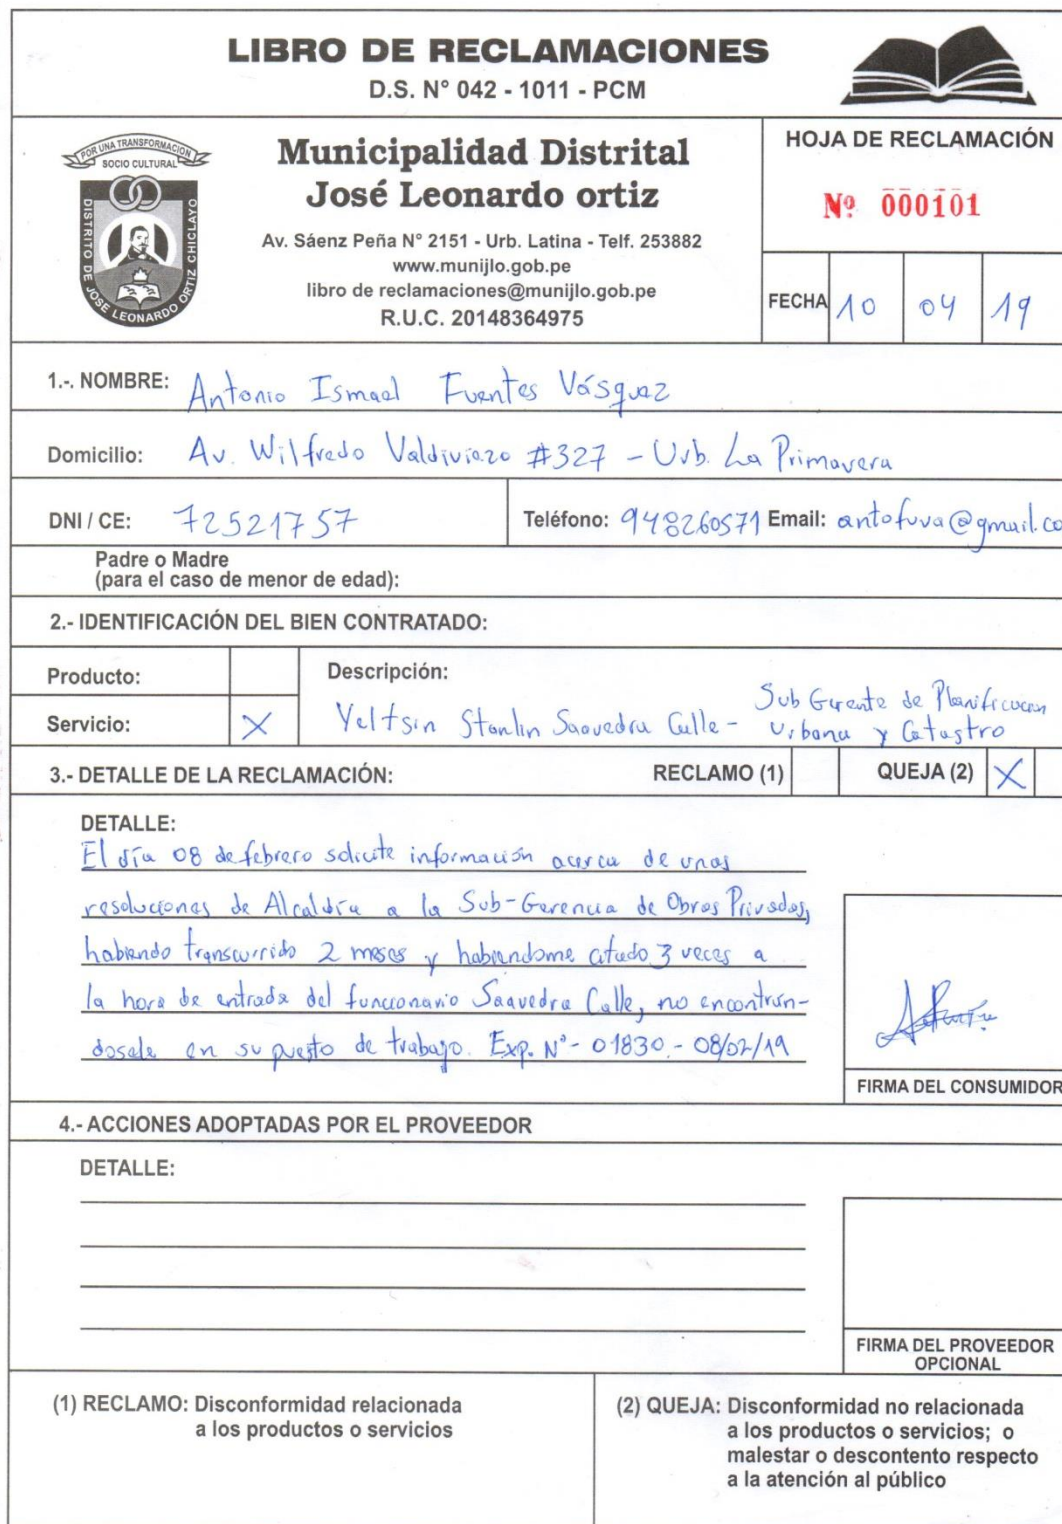 LIBRO DE RECLAMACIONES
D.S. N° 042 - 1011 - PCM
POR UNA TRANSFORMACION
SOCIO CULTURAL
DISTRITO DE JOSE LEONARDO ORTIZ CHICLAYO
Municipalidad Distrital
José Leonardo ortiz
Av. Sáenz Peña N° 2151 - Urb. Latina - Telf. 253882
www.munijlo.gob.pe
libro de reclamaciones@munijlo.gob.pe
R.U.C. 20148364975
HOJA DE RECLAMACIÓN
Nº 000101
FECHA 10 04 19
1.-. NOMBRE: Antonio Ismael Fuentes Vásquez
Domicilio: Av. Wilfredo Valdiviezo #327 - Urb. La Primavera
DNI / CE: 72521757 Teléfono: 948260571 Email: antofuva@gmail.co
Padre o Madre
(para el caso de menor de edad):
2.- IDENTIFICACIÓN DEL BIEN CONTRATADO:
Producto:
Servicio: X
Descripción:
Yeltsin Stanlin Saavedra Calle - Sub Gerente de Planificacion
Urbana y Catastro
3.- DETALLE DE LA RECLAMACIÓN: RECLAMO (1) QUEJA (2) X
DETALLE:
El día 08 de febrero solicite información acerca de unas
resoluciones de Alcaldía a la Sub-Gerencia de Obras Privadas,
habiendo transcurrido 2 meses y habiendome citado 3 veces a
la hora de entrada del funcionario Saavedra Calle, no encontran-
dosele en su puesto de trabajo. Exp. N° - 01830 - 08/02/19
FIRMA DEL CONSUMIDOR
4.- ACCIONES ADOPTADAS POR EL PROVEEDOR
DETALLE:
FIRMA DEL PROVEEDOR
OPCIONAL
(1) RECLAMO: Disconformidad relacionada
a los productos o servicios
(2) QUEJA: Disconformidad no relacionada
a los productos o servicios; o
malestar o descontento respecto
a la atención al público